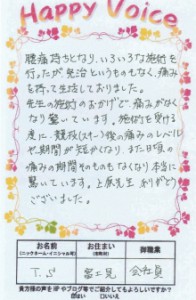 Happy Voice
腰痛持ちとなり、いろいろな施術を
行ったが完治というものもなく、痛み
を持って生活しておりました。
先生の施術のおかげで痛みがなく
なり驚いています。施術を受ける
度に、競技(スポーツ)後の痛みのレベル
や期間が短かくなり、また日頃の
痛みの期間そのものもなくなり本当に
驚いています。上原先生ありがとう
ございました。
お名前 お住まい 御職業
(ニックネーム・イニシャル可) (市町村)
T.S 富士見 会社員
貴方様の声をHPやブログ等でご紹介してもよろしいですか?
はい □いいえ